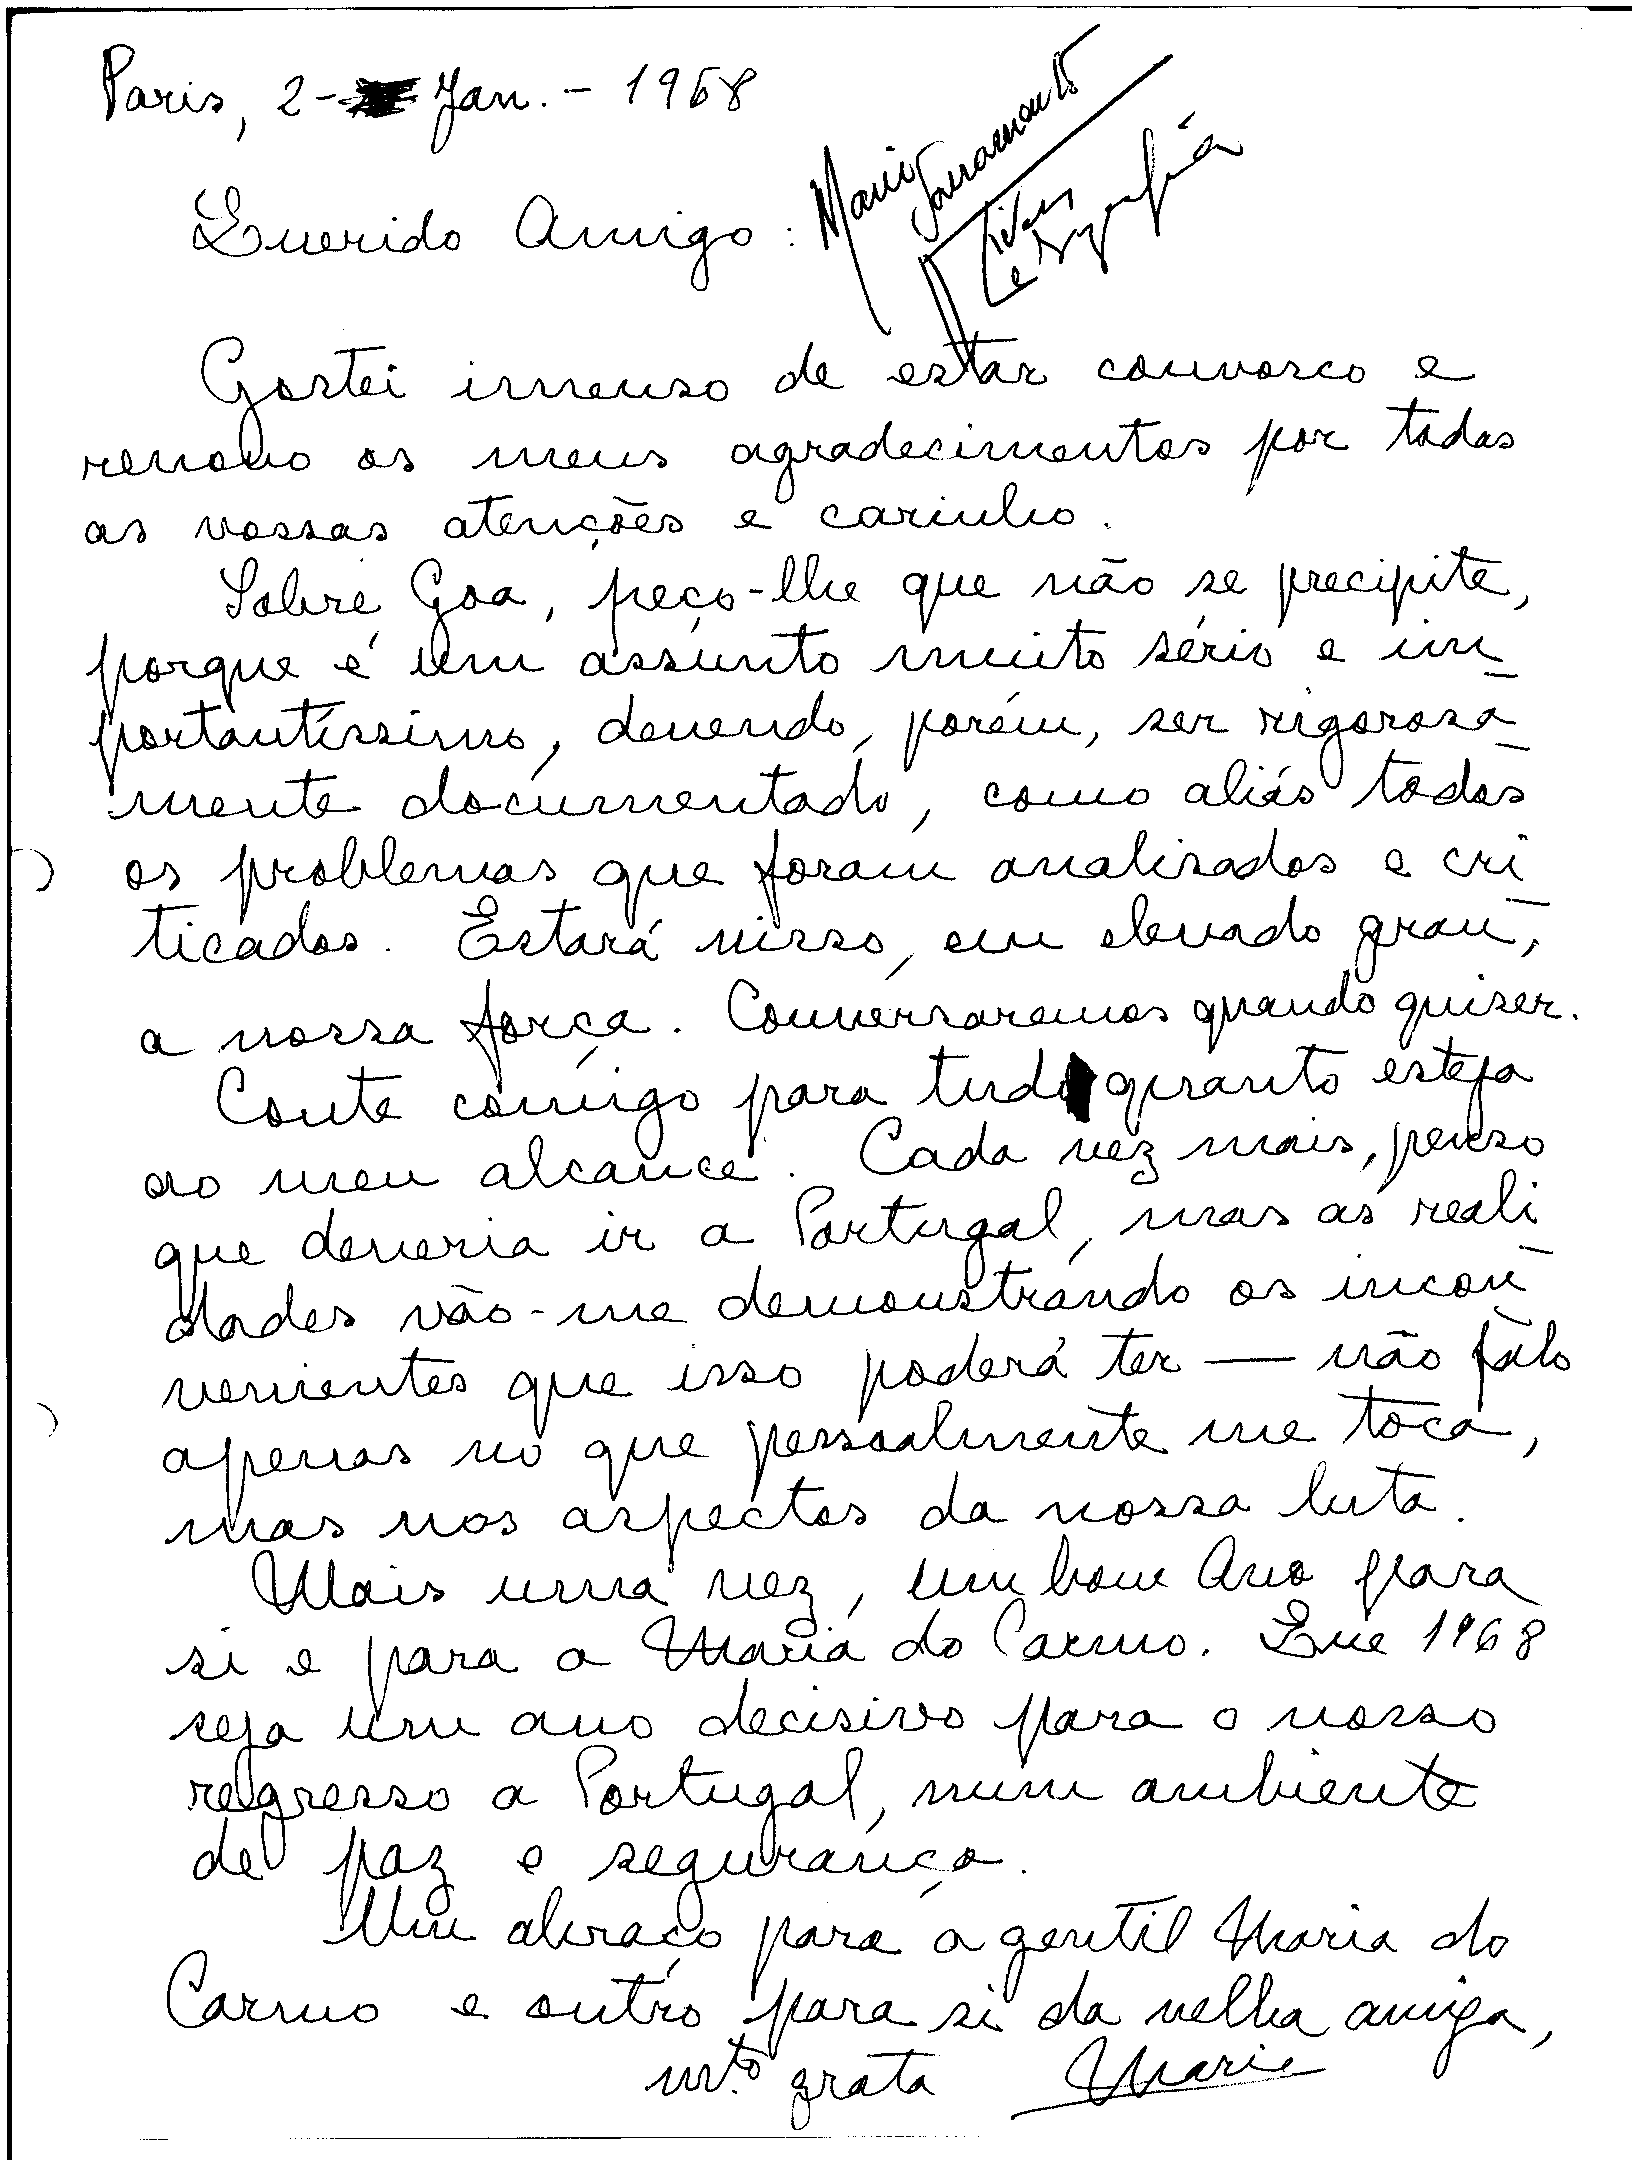 Paris, 2- Jan. - 1968
Querido Amigo:
Gostei imenso de estar convosco e
renovo os meus agradecimentos por todas
as vossas atenções e carinho.
Sobre Goa, peço-lhe que não se precipite,
porque é um assunto muito sério e im
portantíssimo, devendo, porém, ser rigorosa
mente documentado, como aliás todos
os problemas que foram analisados e cri
ticados. Estará nisso, em elevado grau,
a nossa força. Conversaremos quando quiser.
Conte comigo para tudo quanto esteja
ao meu alcance. Cada vez mais, penso
que deveria ir a Portugal, mas as reali
dades vão-me demonstrando os incon
venientes que isso poderá ter — não falo
apenas no que pessoalmente me toca,
mas nos aspectos da nossa luta.
Mais uma vez, um bom Ano para
si e para a Maria do Carmo. Que 1968
seja um ano decisivo para o nosso
regresso a Portugal, num ambiente
de paz e segurança.
Um abraço para a gentil Maria do
Carmo e outro para si da velha amiga,
m.to grata Maria